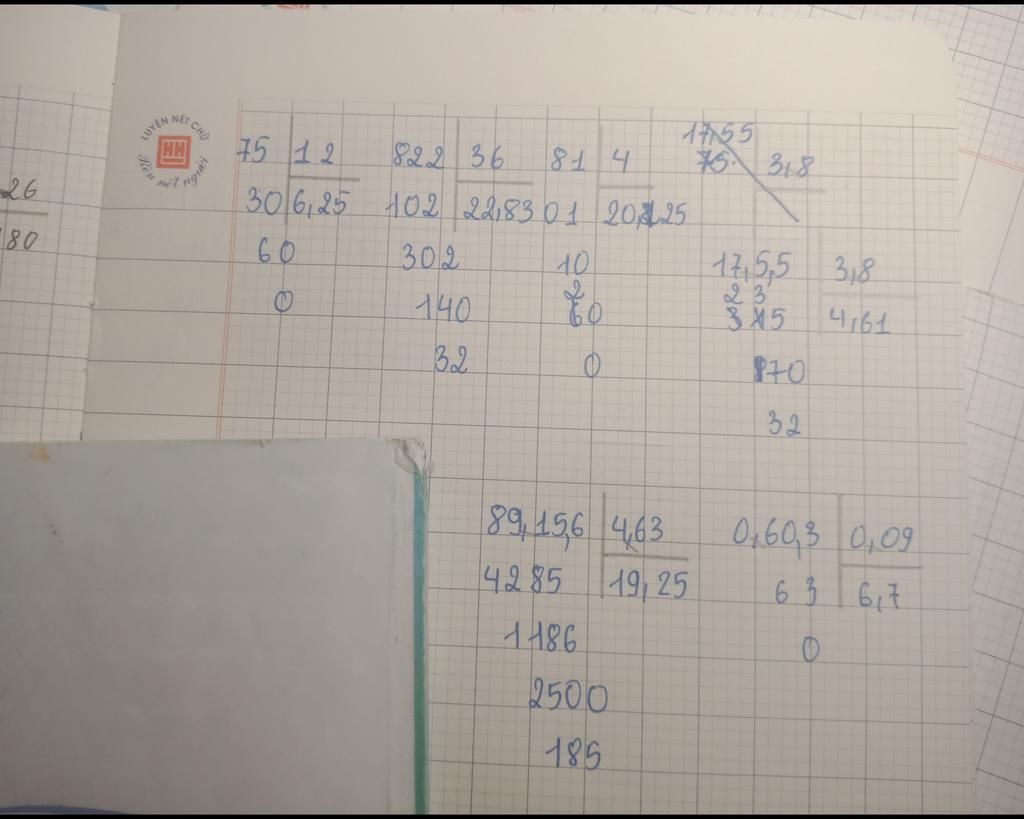 LUYỆN NÉT CHỮ
HH
Rèn nết người
26
80
75 12
30 6,25
60
0
822 36
102 22,83
302
140
32
81 4
01 20,25
10
20
0
17,55
75 3,8
17,5,5 3,8
2 3
3 15 4,61
70
32
89,15,6 4,63
4285 19,25
1186
2500
185
0,60,3 0,09
63 6,7
0